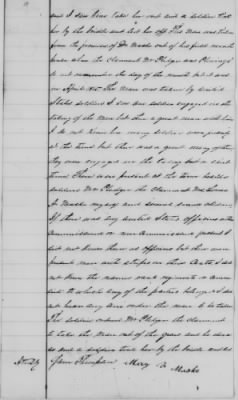 and I saw him take her out and a soldier took
her by the bridle and led her off The Mare was taken
from the premises of Dr Macks out of his field much
when the claimant Mr Phelgar was Plowing I
do not remember the day of the month but it was
in April 1865 The Mare was taken by United
States soldiers I saw one soldier engaged in the
taking of the Mare but there a great many with him
I do not know how many soldiers were present
at the time but there was a great many of them
they were engaged in the taking but a short
time There were present at the time besides
soldiers Mr Phelgar the claimant Mrs
Dr Macks myself and several small children
If there was any United States officers either
Commissioned or non Commissioned present I
did not know them as officers but there were
present men with stripes on their Coats I do
not know the names rank regiments or Com
mands to which any of the parties belonged I did
not hear any one order the mare to be taken
The soldier ordered Mr Phelgar the claimant
to take the Mare out of the gears and he done
so and a soldier took her by the bridle and
Mary Macks